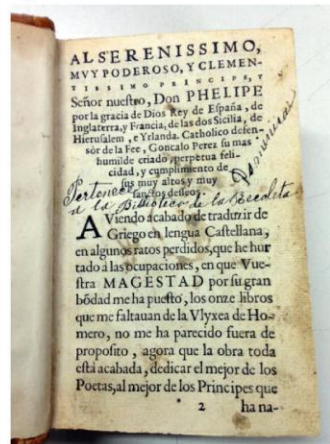 AL SERENISSIMO,
MVY PODEROSO, Y CLEMEN-
TISSIMO PRINCIPE, Y
Señor nuestro, Don PHELIPE
por la gracia de Dios Rey de España, de
Inglaterra, y Francia, de las dos Sicilia, de
Hierusalem, e Yrlanda. Catholico defen-
sor de la Fee, Goncalo Perez su mas
humilde criado, perpetua feli-
cidad, y cumplimiento de
sus muy altos y muy
sanctos desseos.
Pertenece
a la Biblioteca de la Escoleta
AViendo acabado de traduzir de
Griego en lengua Castellana,
en algunos ratos perdidos, que he hur
tado à las ocupaciones, en que Vue-
stra MAGESTAD por su gran
bõdad me ha puesto, los onze libros
que me faltauan de la Vlyxea de Ho-
mero, no me ha parecido fuera de
proposito, agora que la obra toda
està acabada, dedicar el mejor de los
Poetas, al mejor de los Principes que
2 ha na-